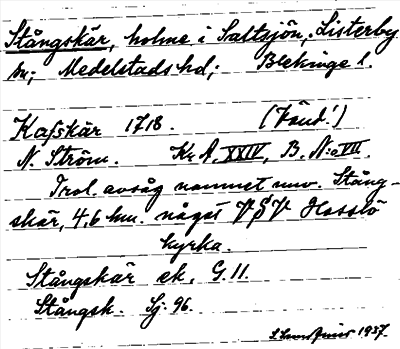 Stångskär, holme i Saltsjön, Listerby
sn; Medelstads hd; Blekinge l.
Kafskär 1718. (Vänd!)
N. Ström. Kr. A. XXIV, B. No VII.
Trol. avsåg namnet nuv. Stång-
skär, 4,6 km. något V S V Hasslö
kyrka.
Stångskär ek. G. 11.
Stångsk. Sj. 96.
1937.